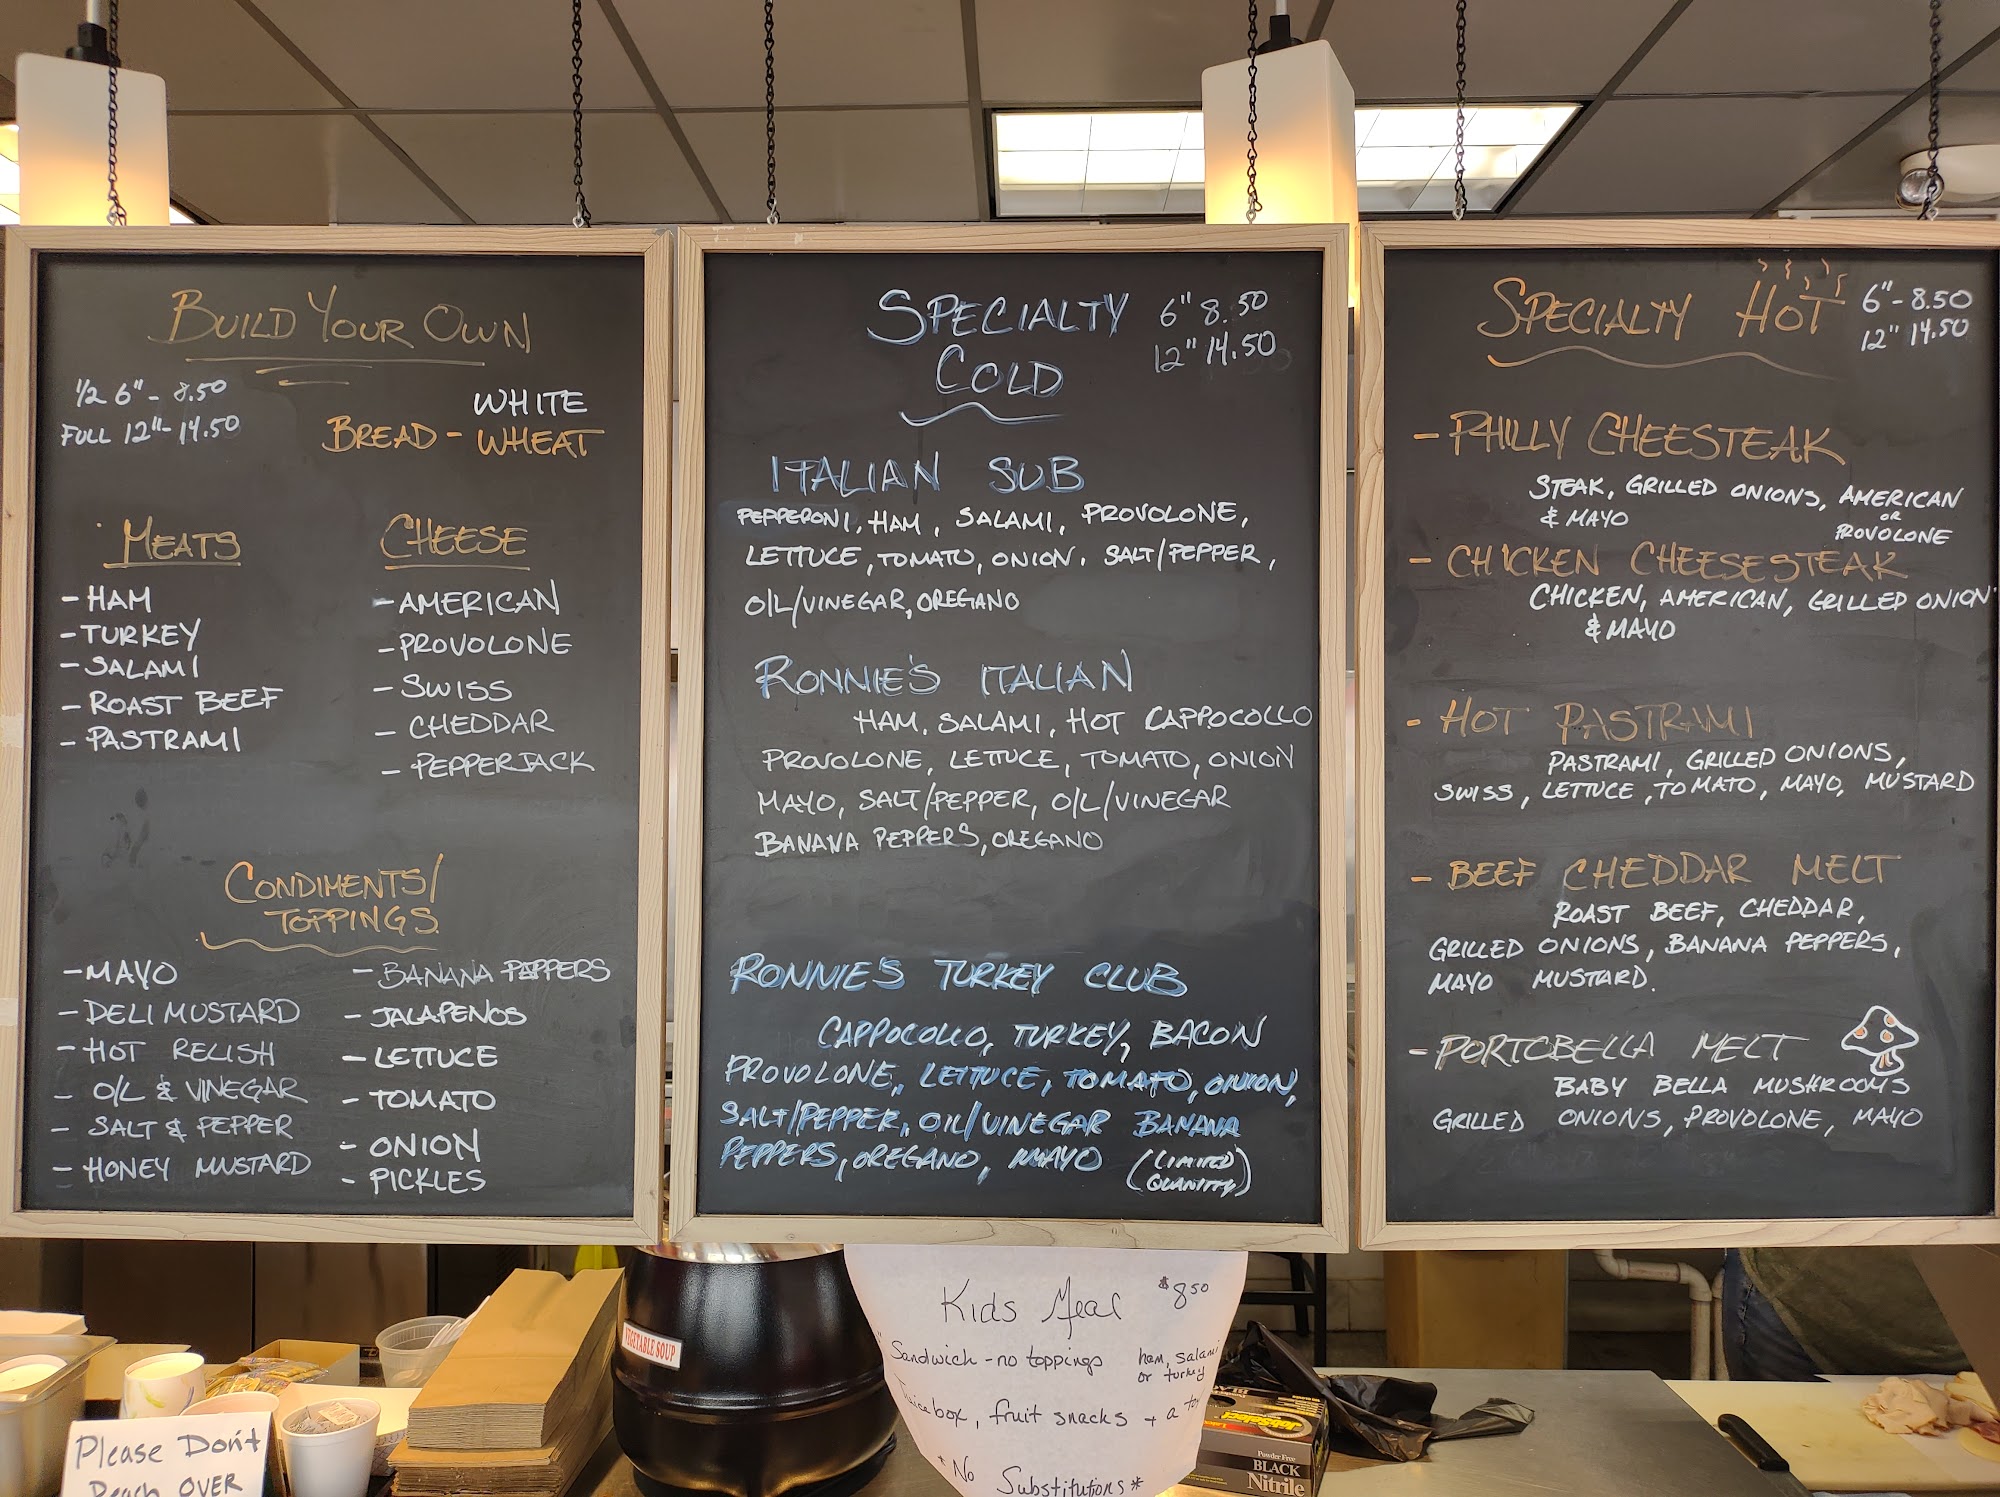 BUILD YOUR OWN
1/2 6" - 8.50
FULL 12" - 14.50
WHITE
BREAD - WHEAT
MEATS
- HAM
- TURKEY
- SALAMI
- ROAST BEEF
- PASTRAMI
CHEESE
- AMERICAN
- PROVOLONE
- SWISS
- CHEDDAR
- PEPPERJACK
CONDIMENTS/
TOPPINGS
- MAYO
- DELI MUSTARD
- HOT RELISH
- OIL & VINEGAR
- SALT & PEPPER
- HONEY MUSTARD
- BANANA PEPPERS
- JALAPENOS
- LETTUCE
- TOMATO
- ONION
- PICKLES
SPECIALTY
COLD
6" 8.50
12" 14.50
ITALIAN SUB
PEPPERONI, HAM, SALAMI, PROVOLONE,
LETTUCE, TOMATO, ONION, SALT/PEPPER,
OIL/VINEGAR, OREGANO
RONNIE'S ITALIAN
HAM, SALAMI, HOT CAPPOCOLLO
PROVOLONE, LETTUCE, TOMATO, ONION
MAYO, SALT/PEPPER, OIL/VINEGAR
BANANA PEPPERS, OREGANO
RONNIE'S TURKEY CLUB
CAPPOCOLLO, TURKEY, BACON
PROVOLONE, LETTUCE, TOMATO, ONION,
SALT/PEPPER, OIL/VINEGAR BANANA
PEPPERS, OREGANO, MAYO (LIMITED
QUANTITY)
SPECIALTY HOT
6" - 8.50
12" 14.50
- PHILLY CHEESTEAK
STEAK, GRILLED ONIONS, AMERICAN
& MAYO OR
PROVOLONE
- CHICKEN CHEESESTEAK
CHICKEN, AMERICAN, GRILLED ONION
& MAYO
- HOT PASTRAMI
PASTRAMI, GRILLED ONIONS,
SWISS, LETTUCE, TOMATO, MAYO, MUSTARD
- BEEF CHEDDAR MELT
ROAST BEEF, CHEDDAR,
GRILLED ONIONS, BANANA PEPPERS,
MAYO MUSTARD.
- PORTOBELLA MELT
BABY BELLA MUSHROOMS
GRILLED ONIONS, PROVOLONE, MAYO
VEGETABLE SOUP
Kids Meal $8.50
Sandwich - no toppings ham, salami
or turkey
Juicebox, fruit snacks + a
*No Substitutions*
Please Don't
Reach OVER
Powder Free
BLACK
Nitrile